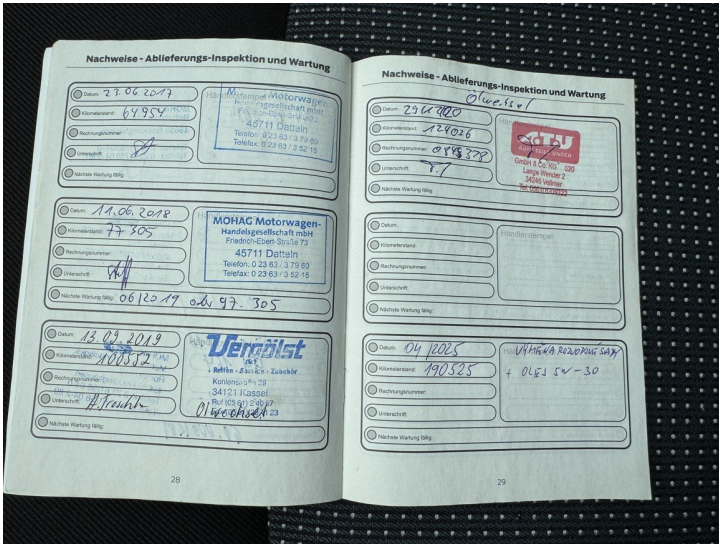 Nachweise - Ablieferungs-Inspektion und Wartung
Datum: 23.06.2017
Kilometerstand: 64954
Rechnungsnummer:
Unterschrift:
Nächste Wartung fällig:
Motorwagen-
Handelsgesellschaft mbH
Friedrich-Ebert-Straße
45711 Datteln
Telefon: 0 23 63 / 3 79 69
Telefax: 0 23 63 / 3 52 15
Datum: 11.06.2018
Kilometerstand: 77 305
Rechnungsnummer:
Unterschrift:
Nächste Wartung fällig: 06/2019 oder 97.305
MOHAG Motorwagen-
Handelsgesellschaft mbH
Friedrich-Ebert-Straße 73
45711 Datteln
Telefon: 0 23 63 / 3 79 69
Telefax: 0 23 63 / 3 52 15
Datum: 13.09.2019
Kilometerstand: 100552
Rechnungsnummer:
Unterschrift:
Nächste Wartung fällig:
Vergölst
Reifen - Service - Zubehör
Kohlenstraße 29
34121 Kassel
Ölwechsel
28
Nachweise - Ablieferungs-Inspektion und Wartung
Ölwechsel
Datum:
Kilometerstand: 124026
Rechnungsnummer:
Unterschrift:
Nächste Wartung fällig:
Händlerstempel
ATU
GmbH & Co. KG 020
Lange Wender 2
34246 Vellmar
Datum:
Kilometerstand:
Rechnungsnummer:
Unterschrift:
Nächste Wartung fällig:
Händlerstempel
Datum: 04/2025
Kilometerstand: 190525
Rechnungsnummer:
Unterschrift:
Nächste Wartung fällig:
VÝMENA
+ OLEJ 5W-30
29